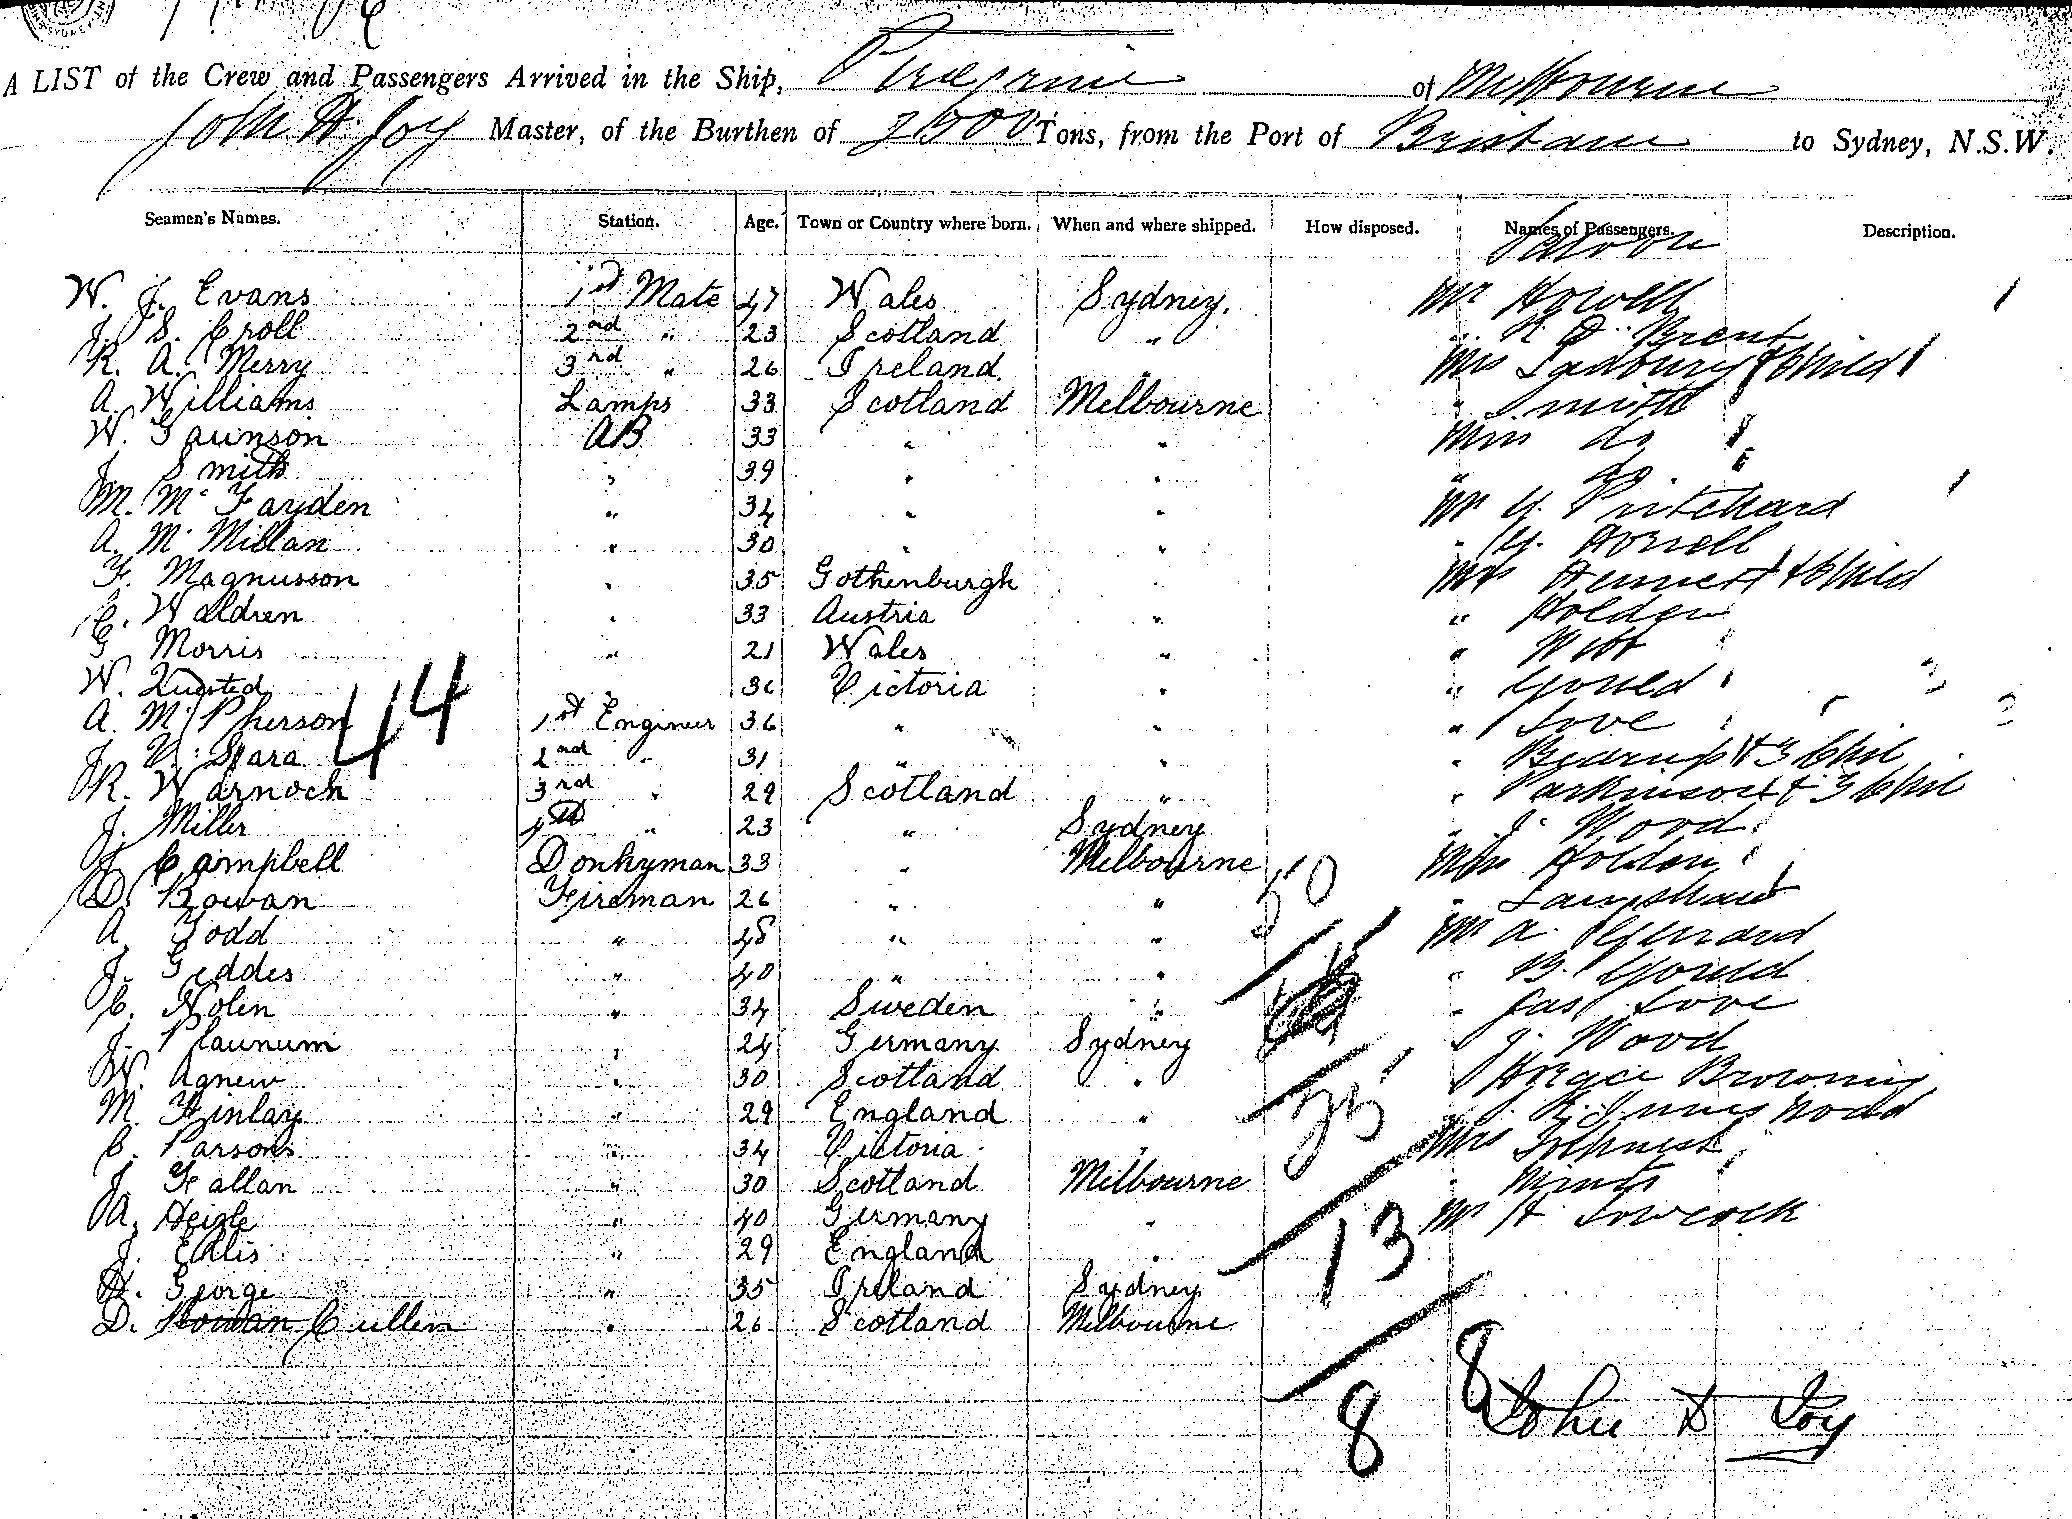 A LIST of the Crew and Passengers Arrived in the Ship, of Melbourne
Master, of the Burthen of Tons, from the Port of Brisbane to Sydney, N.S.W.
Seamen's Names. Station. Age. Town or Country where born. When and where shipped. How disposed. Names of Passengers. Description.
Saloon
W. J. Evans 1st Mate 47 Wales Sydney. Mr Howell
J. S. Croll 2nd " 23 Scotland " Brent
R. A. Merry 3rd " 26 Ireland " Mrs & Child
A. Williams Lamps 33 Scotland Melbourne " Smith
W. Gaunson AB 33 " " Miss do
J. Smith " 39 " " " do
M. Mc Fayden " 34 " " Mr G. Pritchard
A. Mc Millan " 30 " " " G. Horrell
F. Magnusson " 35 Gothenburgh " Mrs & Child
C. Waldren " 33 Austria " " Holden
G Morris " 21 Wales " "
W. Quested 36 Victoria " " Gould
A. Mc Pherson 1st Engineer 36 " " " Love
44
J. 2nd " 31 " " " & 3 Chil
R. Warnock 3rd " 29 Scotland " " Parkinson & 3 Chil
J. Miller 4th " 23 " Sydney " J. Wood
J. Campbell Donkyman 33 " Melbourne Miss Holden
D. Rowan Fireman 26 " " "
50
A. Todd " 48 " " Mr A. Gerrard
J. Geddes " 40 " " " B. Gould
C. Nolen " 34 Sweden " " Jas Love
J. " 24 Germany Sydney " J. Wood
W. Agnew " 30 Scotland " " Horace Browning
M. Finlay " 29 England " " Wood
35
C. Parsons " 34 Victoria " Mrs
J. Fallan " 30 Scotland Melbourne "
A. " 40 Germany " Mr H. Lowcock
J. Ellis " 29 England "
13
H. George " 35 Ireland Sydney
D. Rowan Cullen " 26 Scotland Melbourne
8 8
John Joy